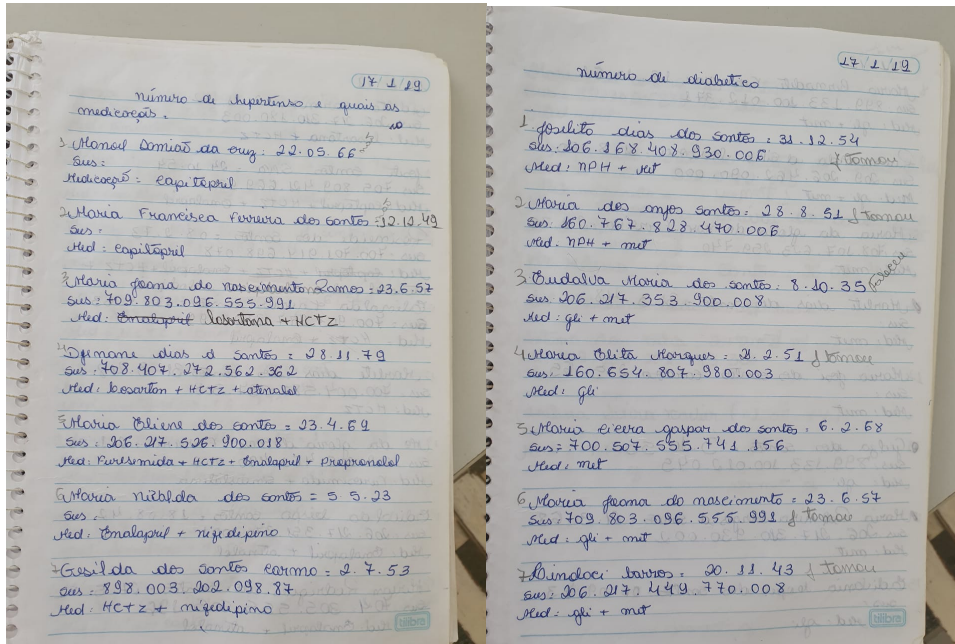 17 / 1 / 19
número de hipertenso e quais as
medicações.
1 Manoel Damião da cruz : 22.05.66
Sus :
Medicação = capitopril
2 Maria Francisca Ferreira dos santos = 12.12.49
Sus :
Med : capitopril
3 Maria Joana do nascimento Ramos = 23.6.57
Sus : 709.803.096.555.991
Med : Enalapril losortana + HCTZ
4 dias d santos = 28.11.79
Sus : 708.407.272.562.362
Med : Losartan + HCTZ + atenalol
5 Maria Eliene dos santos = 23.4.69
Sus : 206.217.526.900.018
Med : Furesemida + HCTZ + Enalapril + Propronalol
6 Maria dos santos = 5 5.23
Sus
Med : Enalapril + nifidipino
7 Gesilda dos santos carmo = 2.7.53
Sus = 898.003.202.098.87
Med : HCTZ + nifidipino
tilibra
17 / 1 / 19
número de diabetico
1 Joselito dias dos santos = 31.12.54
Sus : 106.168.408.930.006 tomou
Med : NPH + Met
2 Maria dos anjos santos = 28.8.51 tomou
Sus : 160.767.828.470.006
Med. NPH + met
3 Eudalva Maria dos santos : 8.10.35 Faleceu
Sus : 206.217.353.900.008
Med : gli + met
4 Maria Elita Marques = 21.2.51 tomou
Sus : 160.654.807.980.003
Med : gli
5 Maria cicera gaspar dos santos : 6.2.68
Sus = 700.507.555.741.156
Med : met
6 Maria Joana do nascimento = 23.6.57
Sus : 709.803.096.555.991 tomou
Med : gli + met
7 Lindoci barros = 20.11.43 tomou
Sus : 206.217.449.770.008
Med : gli + met
tilibra